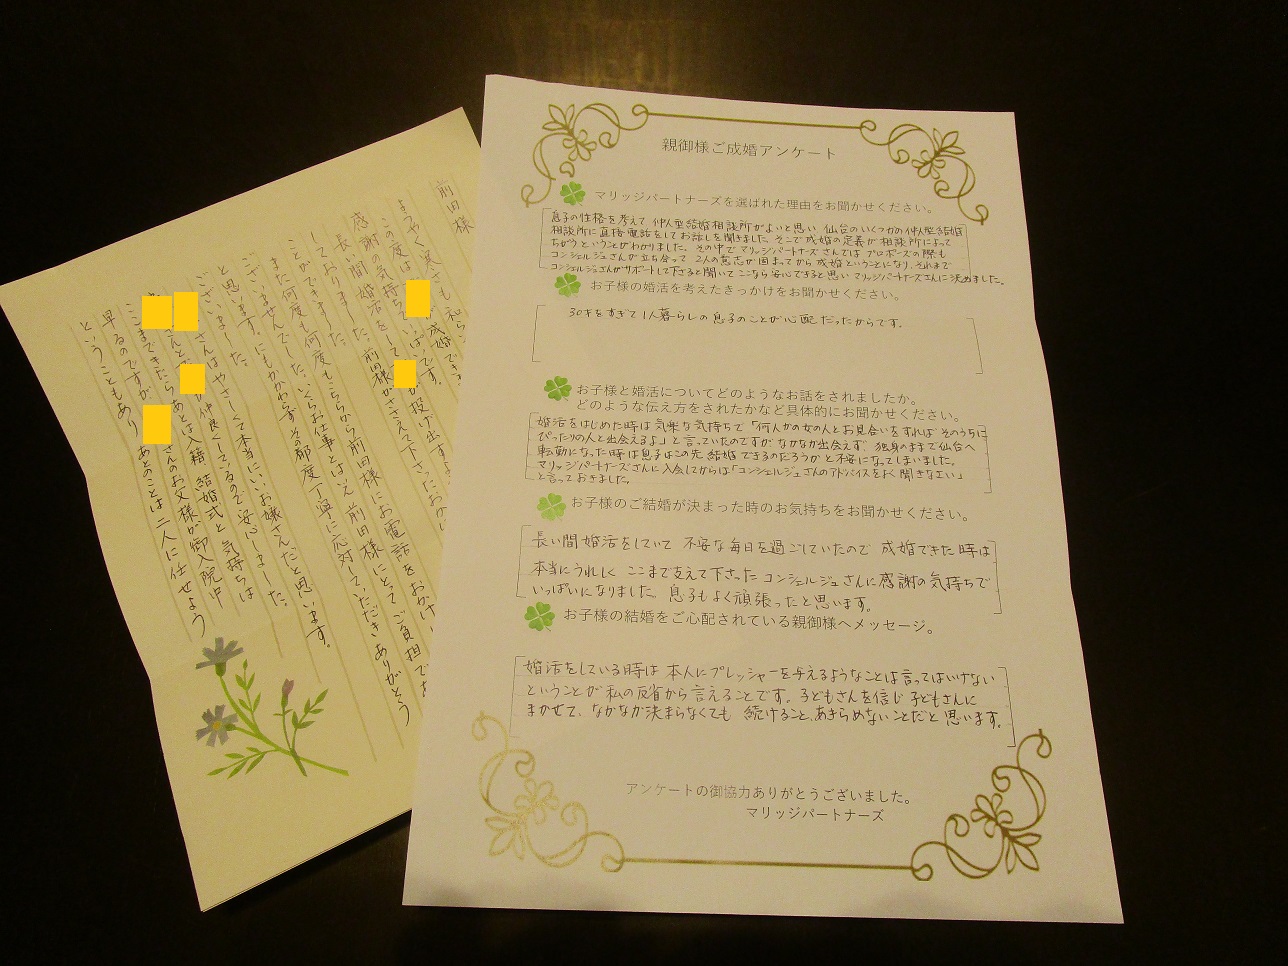 親御様ご成婚アンケート
マリッジパートナーズを選ばれた理由をお聞かせください。
息子の性格を考えて仲人型結婚相談所がよいと思い 仙台のいくつかの仲人型結婚
相談所に直接電話をしてお話しを聞きました。そこで成婚の定義が相談所によって
ちがうということがわかりました。その中でマリッジパートナーズさんではプロポーズの際も
コンシェルジュさんが立ち合って 2人の意志が固まってから成婚ということになり、それまで
コンシェルジュさんがサポートして下さると聞いて ここなら安心できると思いマリッジパートナーズさんに決めました。
お子様の婚活を考えたきっかけをお聞かせください。
30才をすぎて1人暮らしの息子のことが心配だったからです。
お子様と婚活についてどのようなお話をされましたか。
どのような伝え方をされたかなど具体的にお聞かせください。
婚活をはじめた時は気楽な気持ちで「何人かの女の人とお見合いをすれば そのうちに
ぴったりの人と出会えるよ」と言っていたのですが なかなか出会えず 独身のままで仙台へ
転勤になった時は息子はこの先 結婚できるのだろうか と不安になってしまいました。
マリッジパートナーズさんに入会してからは「コンシェルジュさんのアドバイスをよく聞きなさい」
と言っておきました。
お子様のご結婚が決まった時のお気持ちをお聞かせください。
長い間婚活をしていて 不安な毎日を過ごしていたので 成婚できた時は
本当にうれしく ここまで支えて下さった コンシェルジュさんに感謝の気持ちで
いっぱいになりました。息子もよく頑張ったと思います。
お子様の結婚をご心配されている親御様へメッセージ。
婚活をしている時は 本人にプレッシャーを与えるようなことは言ってはいけない
ということが私の反省から言えることです。子どもさんを信じ 子どもさんに
まかせて、なかなか決まらなくても 続けること、あきらめないことだと思います。
アンケートの御協力ありがとうございました。
マリッジパートナーズ
前田様
ようやく寒さも和らい
この度は 成婚でき
感謝の気持ちでいっぱいです。
長い間婚活をして が投げ出すことなく
しておりました。前田様がささえて下さった
ことができました。
また何度も何度もこちらから前田様にお電話をおかけし
ございませんでした。いくらお仕事とはいえ 前田様にとってご負担で
と思います。にもかかわらず その都度丁寧に応対していただきありがとう
ございました。
さんはやさしくて本当にいいお嬢さんだと思います。
さんと 仲良くしているので安心しました。
ここまできたら あとは入籍、結婚式と気持ちは
早るのですが、 さんのお父様が御入院中
ということもあり あとのことは二人に任せよう